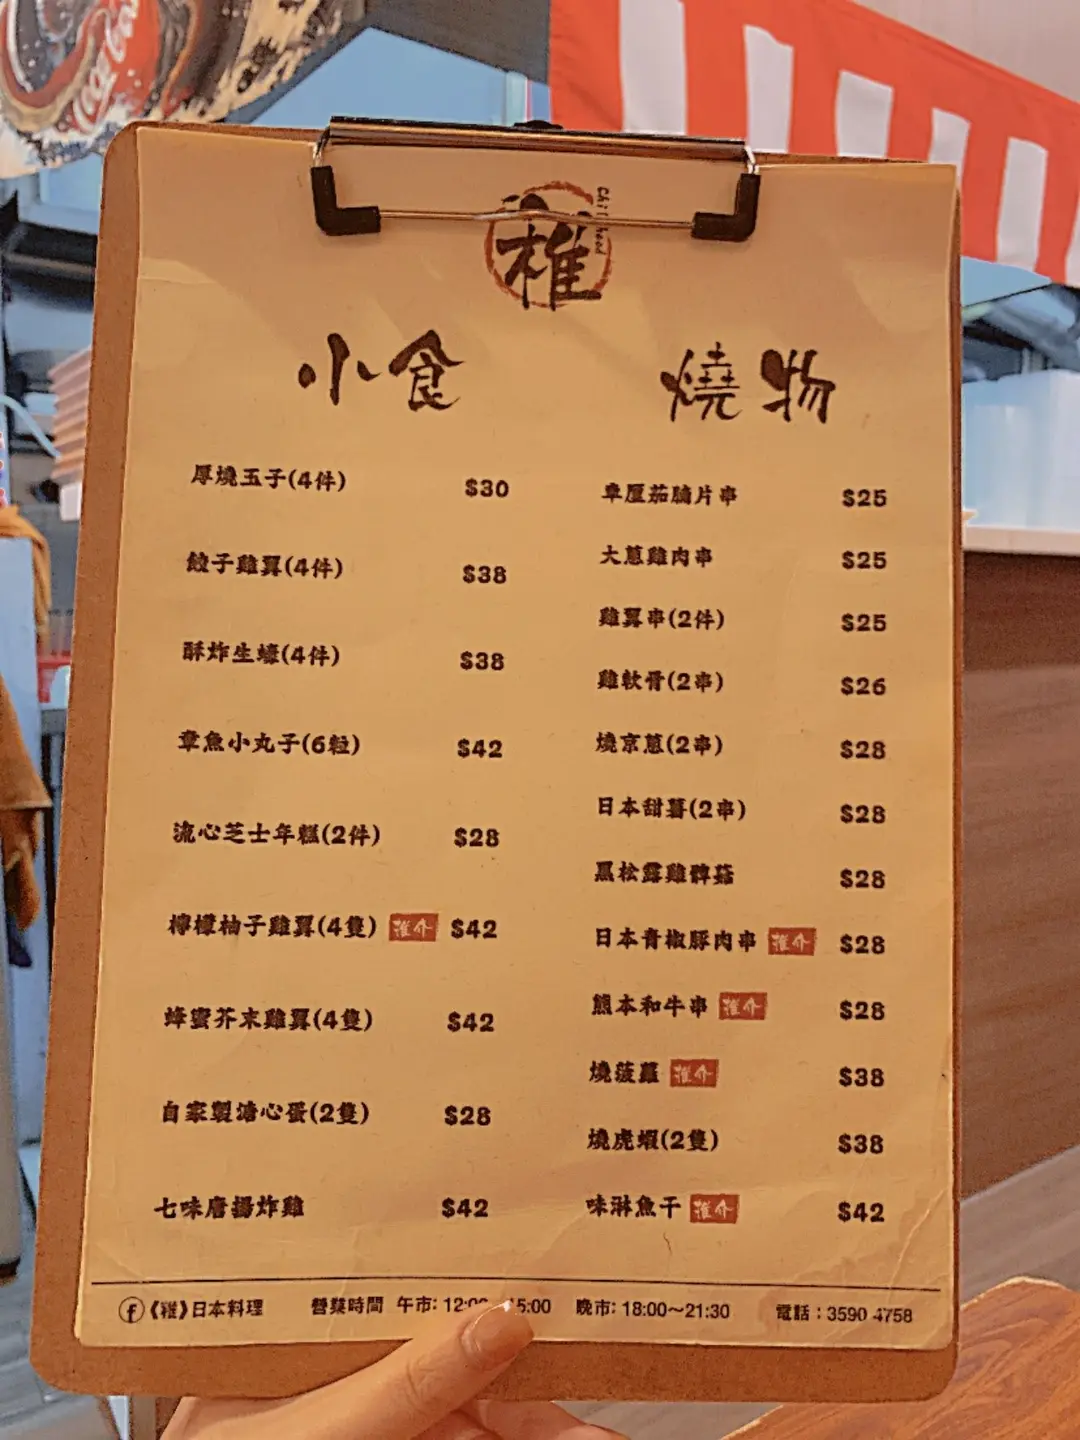 Coca-Cola
稚
小食
厚燒玉子(4件) $30
餃子雞翼(4件) $38
酥炸生蠔(4件) $38
章魚小丸子(6粒) $42
流心芝士年糕(2件) $28
檸檬柚子雞翼(4隻) 推介 $42
蜂蜜芥末雞翼(4隻) $42
自家製溏心蛋(2隻) $28
七味唐揚炸雞 $42
燒物
車厘茄腩片串 $25
大蔥雞肉串 $25
雞翼串(2件) $25
雞軟骨(2串) $26
燒京蔥(2串) $28
日本甜薯(2串) $28
黑松露雞髀菇 $28
日本青椒豚肉串 推介 $28
熊本和牛串 推介 $28
燒菠蘿 推介 $38
燒虎蝦(2隻) $38
味淋魚干 推介 $42
f《稚》日本料理 營業時間 午市: 12:00 15:00 晚市: 18:00～21:30 電話：3590 4758